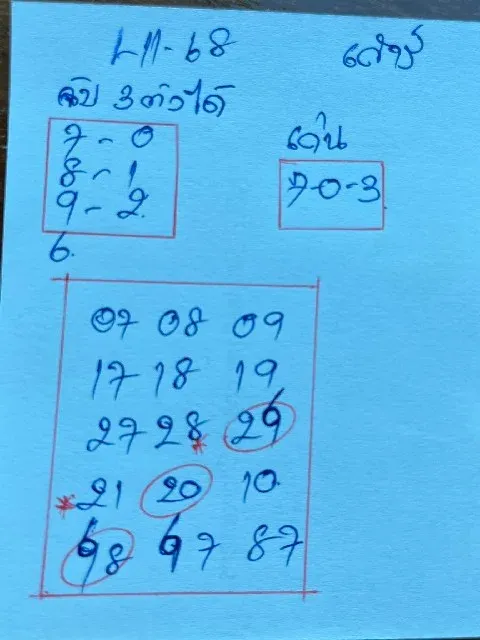 1-11-68 เสาร์
จับ 3 ตัวได้
7-0
8-1
9-2
6.
เด่น
70-3
07 08 09
17 18 19
27 28 29
21 20 10
98 97 87